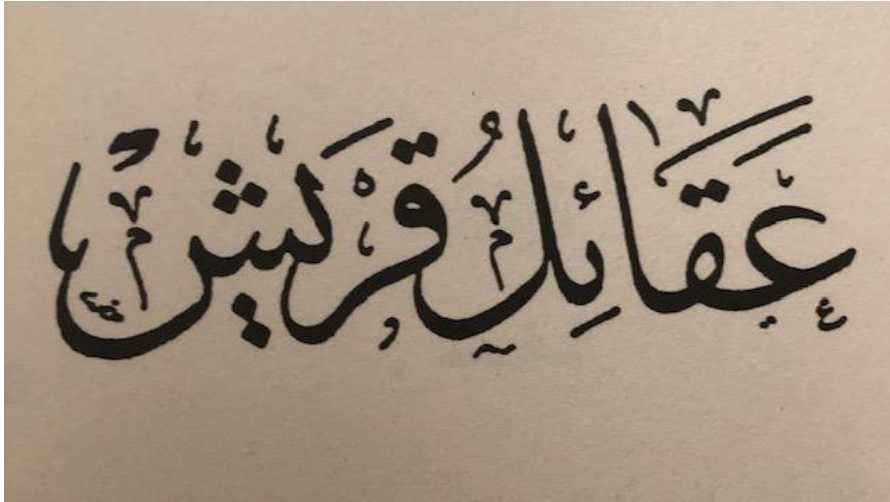 عَقَائِلُ قُرَيْشٍ